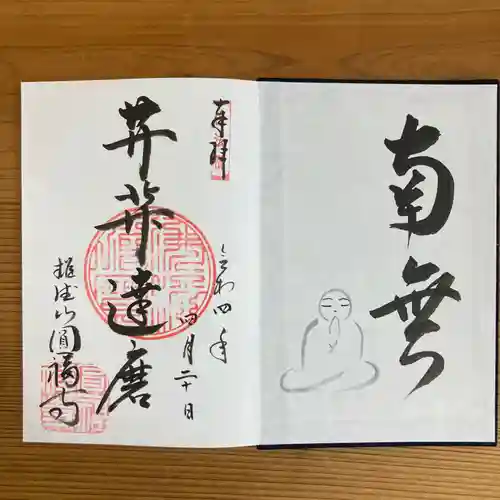 南無
奉拝
令和四年
四月二十日
菩薩達磨
雄徳山圓福寺